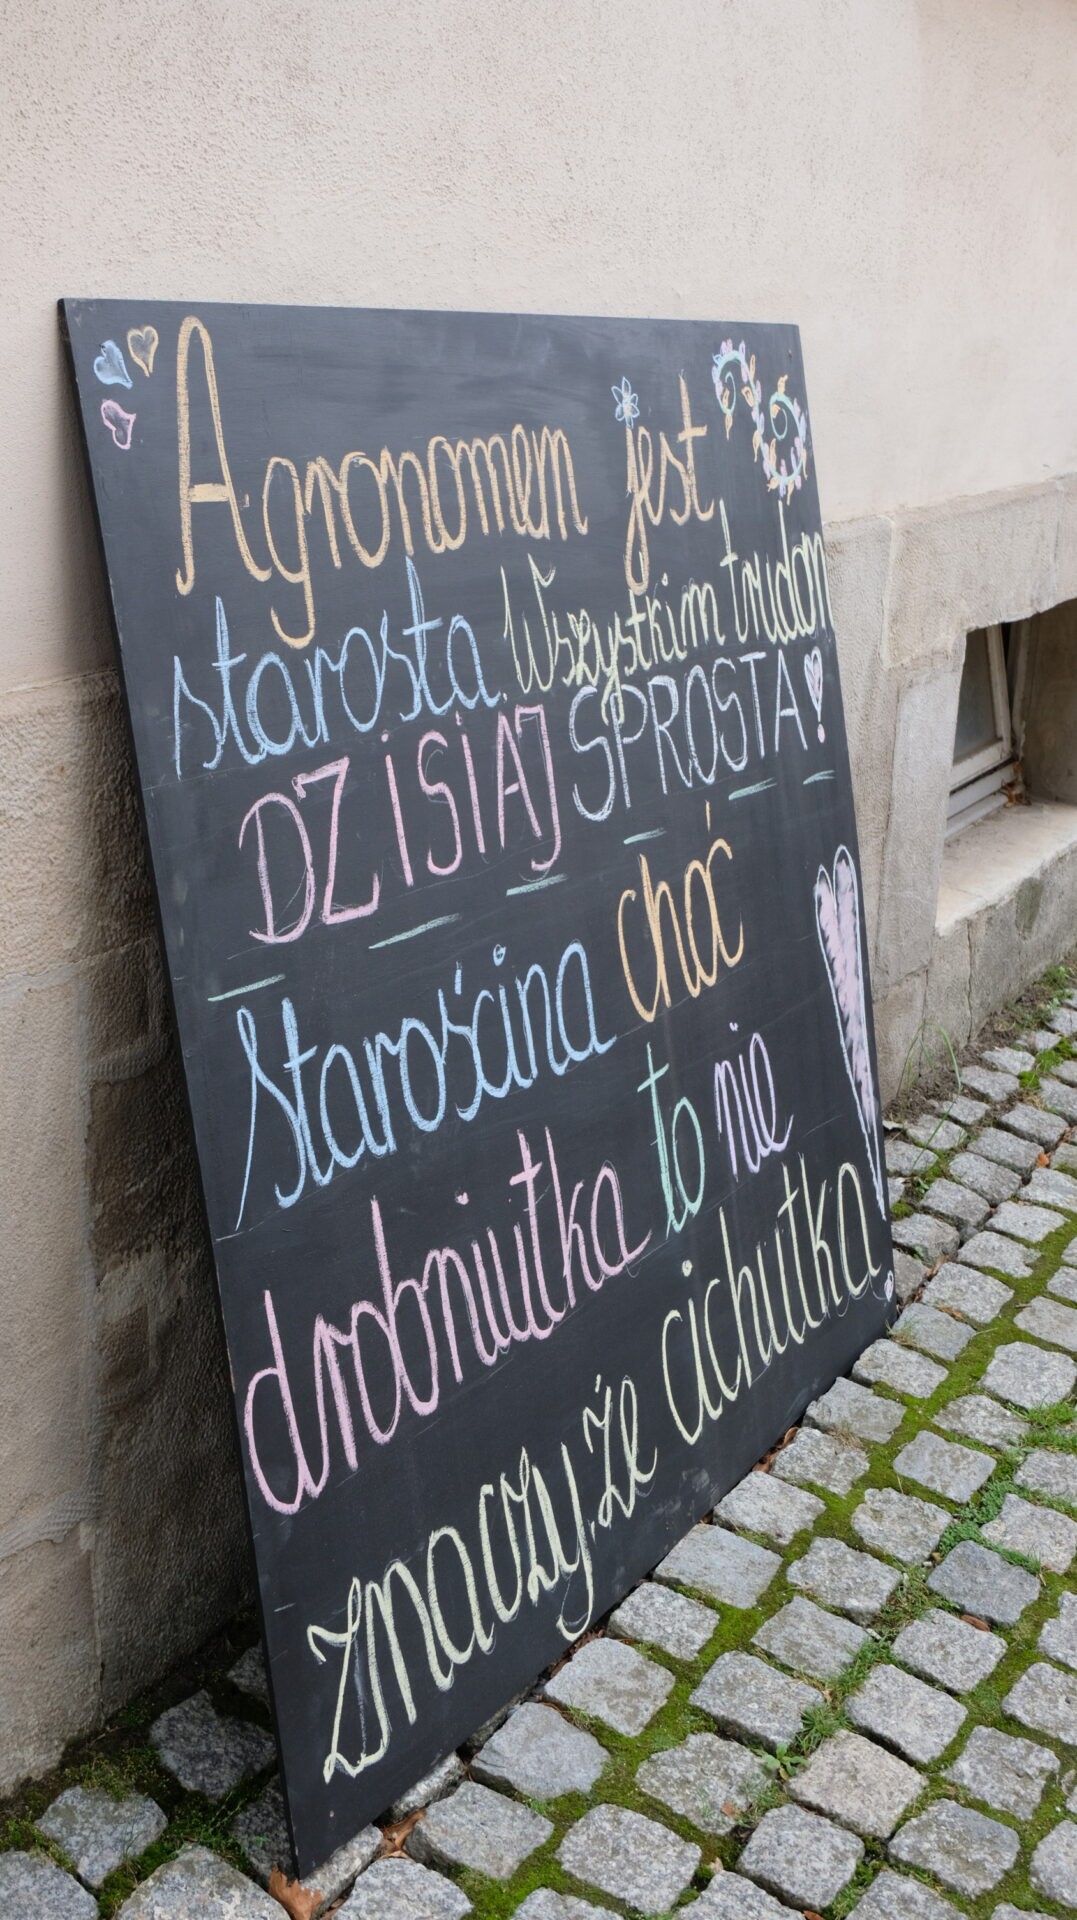 Agronomem jest
starosta. Wszystkim trudom
DZISIAJ SPROSTA!
Starościna choć
drobniutka to nie
znaczy, że cichutka